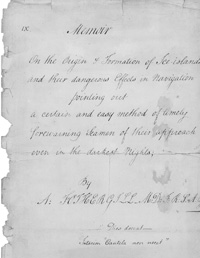 IX.
Memoir
On the Origin & Formation of Ice-islands
and their dangerous Effects in Navigation
pointing out
a certain and easy method of timely
forewarning Seamen of their approach
even in the darkest Nights,
By
A. FOTHERGILL M.D. F.R.S. A